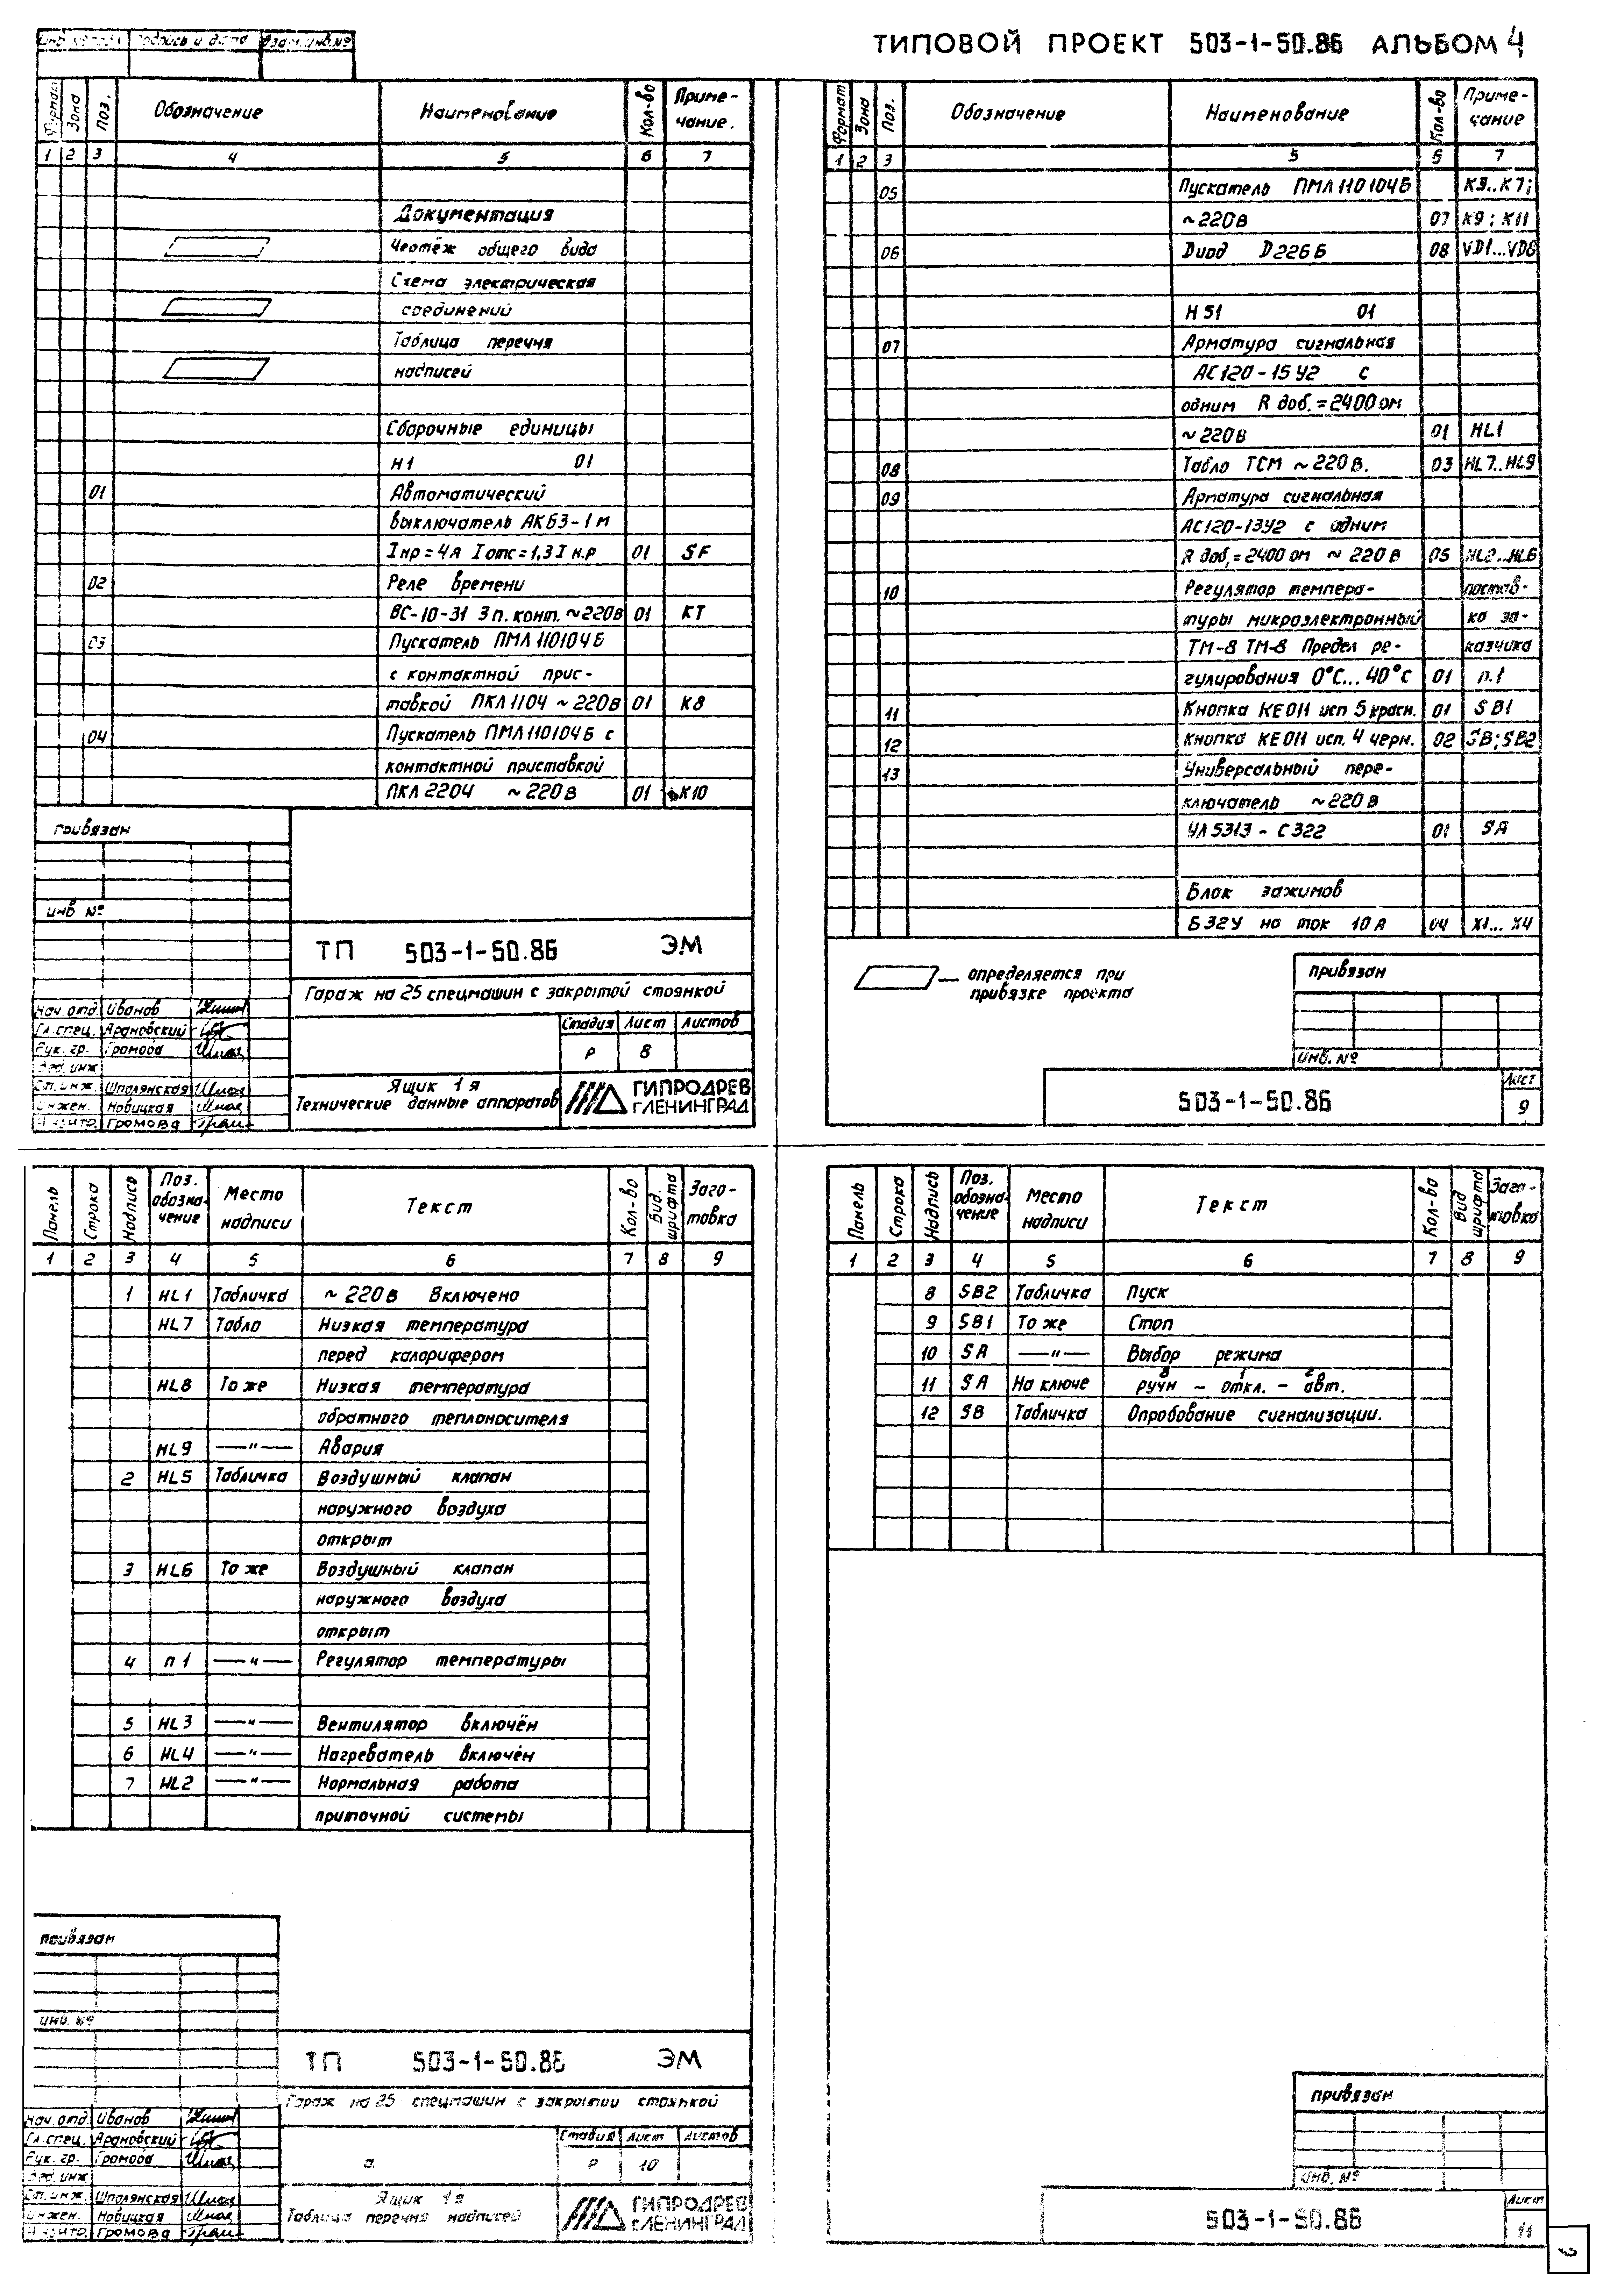 ТИПОВОЙ ПРОЕКТ 503-1-50.86 АЛЬБОМ 4
Подпись и дата Взам.инв.№
Формат Зона Поз. Обозначение Наименование Кол-во Приме-
чание.
1 2 3 4 5 6 7
Документация
Чертёж общего вида
Схема электрическая
соединений
Таблица перечня
надписей
Сборочные единицы
Н1 01
01 Автоматический
выключатель АК63-1м
Iнр=4А Iотс=1,3Iн.р 01 SF
02 Реле времени
ВС-10-31 3п.конт. ~220в 01 КТ
03 Пускатель ПМЛ110104Б
с контактной прис-
тавкой ПКЛ1104 ~220в 01 К8
04 Пускатель ПМЛ110104Б с
контактной приставкой
ПКЛ 2204 ~220в 01 К10
Привязан
инв №
ТП 503-1-50.86 ЭМ
Гараж на 25 спецмашин с закрытой стоянкой
Стадия Лист Листов
Р 8
Нач.отд. Иванов
Гл.спец. Арановский
Рук.гр. Громова
Вед.инж
Ст.инж. Шполянская
Инжен. Новицкая
Н.контр. Громова
Ящик 1я
Технические данные аппаратов
ГИПРОДРЕВ
г.ЛЕНИНГРАД
Формат Зона Поз. Обозначение Наименование Кол-во Приме-
чание
1 2 3 5 6 7
05 Пускатель ПМЛ110104Б К3..К7;
~220в 07 К9; К11
06 Диод D226Б 08 VD1...VD8
Н51 01
07 Арматура сигнальная
АС120-15У2 с
одним R доб.=2400ом
~220в 01 HL1
08 Табло ТСМ ~220в. 03 HL7..HL9
09 Арматура сигнальная
АС120-13У2 с одним
R доб.=2400ом ~220в 05 HL2..HL6
10 Регулятор темпера- постав-
туры микроэлектронный ка за-
ТМ-8 ТМ-8 Предел ре- казчика
гулирования 0°С...40°С 01 п.1
11 Кнопка КЕ011 исп 5 красн. 01 SB1
12 Кнопка КЕ011 исп. 4 черн. 02 SB;SB2
13 Универсальный пере-
ключатель ~220в
УЛ5313-С322 01 SA
Блок зажимов
Б32У на ток 10А 04 Х1...Х4
— определяется при
привязке проекта
привязан
инв. №
503-1-50.86
Лист
9
Панель Строка Надпись Поз.
обозна-
чение Место
надписи Текст Кол-во Вид.
шрифта Заго-
товка
1 2 3 4 5 6 7 8 9
1 HL1 Табличка ~220в Включено
HL7 Табло Низкая температура
перед калорифером
HL8 То же Низкая температура
обратного теплоносителя
HL9 —"— Авария
2 HL5 Табличка Воздушный клапан
наружного воздуха
открыт
3 HL6 То же Воздушный клапан
наружного воздуха
открыт
4 п1 —"— Регулятор температуры
5 HL3 —"— Вентилятор включён
6 HL4 —"— Нагреватель включён
7 HL2 —"— Нормальная работа
приточной системы
привязан
инв. №
ТП 503-1-50.86 ЭМ
Гараж на 25 спецмашин с закрытой стоянкой
Стадия Лист Листов
Р 10
Нач.отд. Иванов
Гл.спец. Арановский
Рук.гр. Громова
Вед.инж
Ст.инж. Шполянская
Инжен. Новицкая
Н.контр. Громова
Ящик 1я
Таблица перечня надписей
ГИПРОДРЕВ
г.ЛЕНИНГРАД
Панель Строка Надпись Поз.
обозна-
чение Место
надписи Текст Кол-во Вид
шрифта Заго-
товка
1 2 3 4 5 6 7 8 9
8 SB2 Табличка Пуск
9 SB1 То же Стоп
10 SA —"— Выбор режима
11 SA На ключе ручн – откл. – авт.
12 SB Табличка Опробование сигнализации.
привязан
инв. №
503-1-50.86
Лист
11